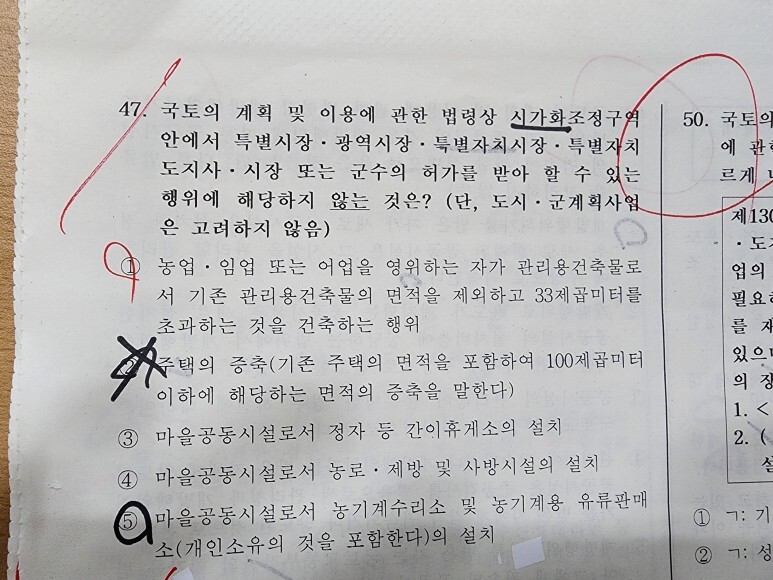 47. 국토의 계획 및 이용에 관한 법령상 시가화조정구역
안에서 특별시장・광역시장・특별자치시장・특별자치
도지사・시장 또는 군수의 허가를 받아 할 수 있는
행위에 해당하지 않는 것은? (단, 도시・군계획사업
은 고려하지 않음)
① 농업・임업 또는 어업을 영위하는 자가 관리용건축물로
서 기존 관리용건축물의 면적을 제외하고 33제곱미터를
초과하는 것을 건축하는 행위
② 주택의 증축(기존 주택의 면적을 포함하여 100제곱미터
이하에 해당하는 면적의 증축을 말한다)
③ 마을공동시설로서 정자 등 간이휴게소의 설치
④ 마을공동시설로서 농로・제방 및 사방시설의 설치
⑤ 마을공동시설로서 농기계수리소 및 농기계용 유류판매
소(개인소유의 것을 포함한다)의 설치
50. 국토의
에 관한
르게 
제130
・도지
업의
필요하
를 재
있으며
의 장
1. <
2. (
설
① ㄱ: 기
② ㄱ: 성